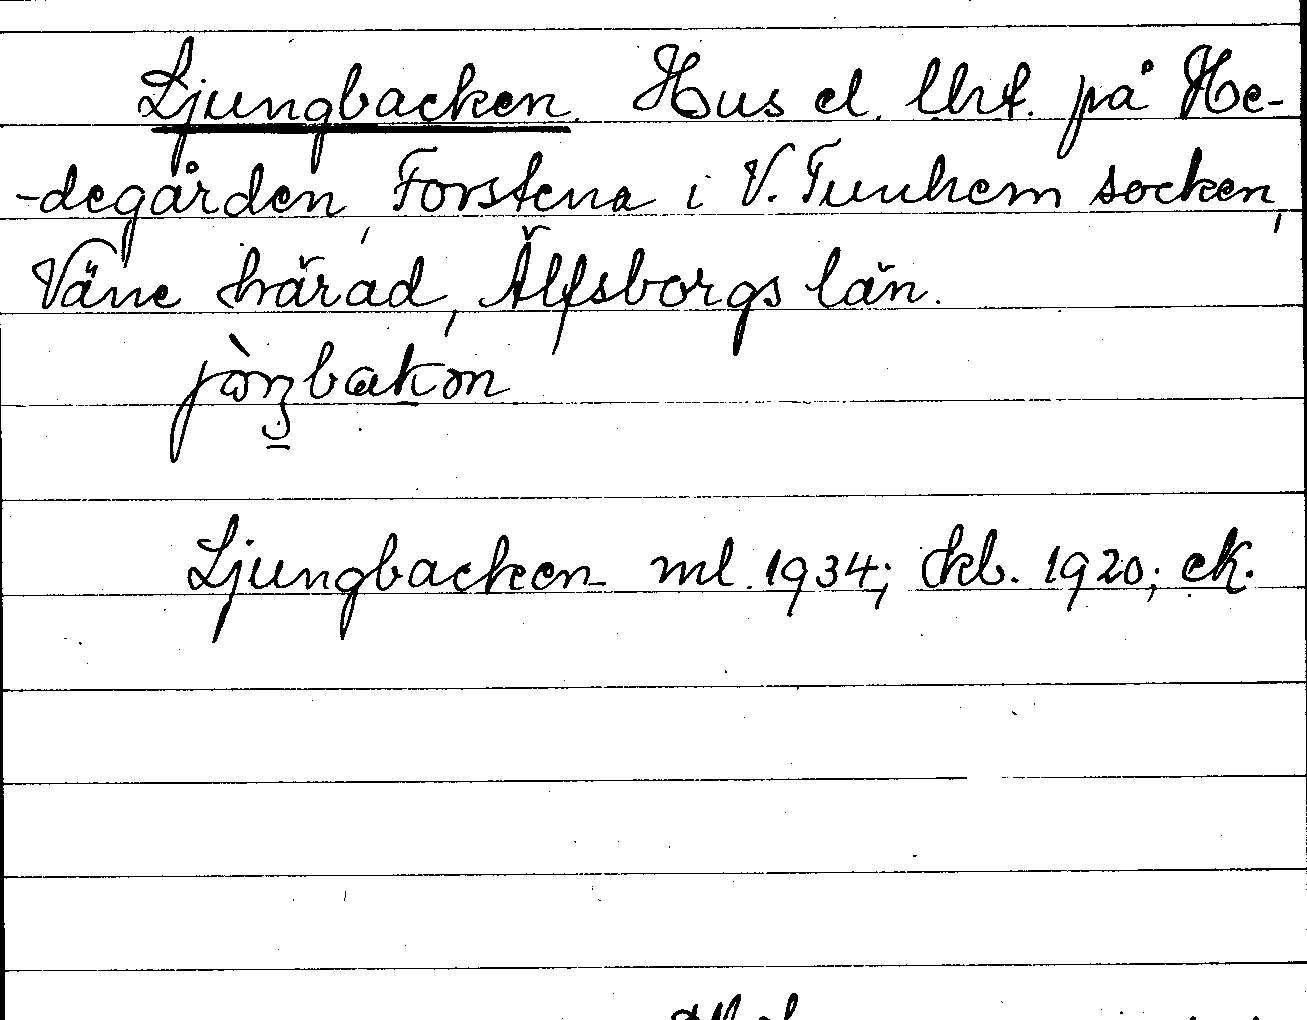 Ljungbacken. Hus el. lht. på He-
-degården, Forstena i V. Tunhem socken,
Väne härad, Älfsborgs län.
Ljungbacken ml. 1934; kb. 1920; ek.